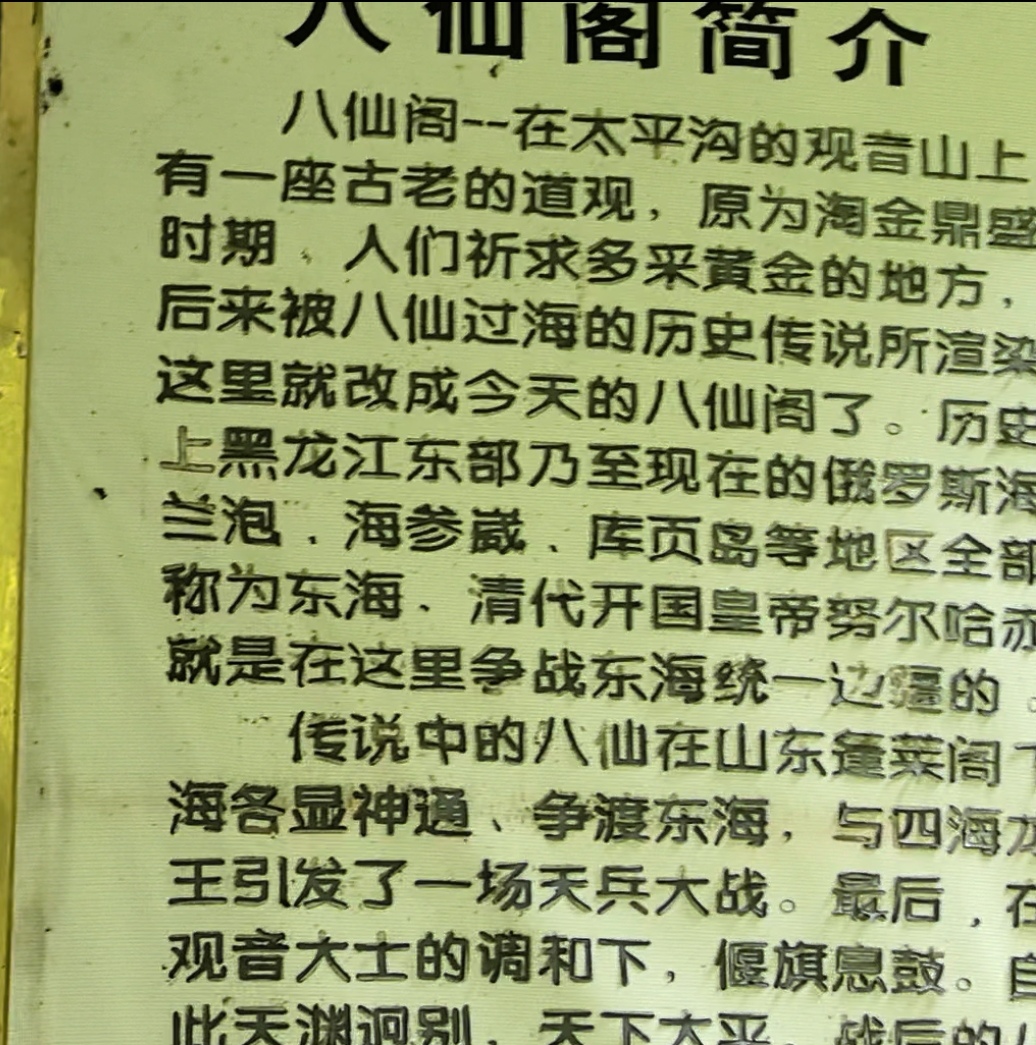 八仙阁简介
八仙阁--在太平沟的观音山上
有一座古老的道观，原为淘金鼎盛
时期、人们祈求多采黄金的地方，
后来被八仙过海的历史传说所渲染
这里就改成今天的八仙阁了。历史
上黑龙江东部乃至现在的俄罗斯海
兰泡、海参崴、库页岛等地区全部
称为东海、清代开国皇帝努尔哈赤
就是在这里争战东海统一边疆的。
传说中的八仙在山东蓬莱阁下
海各显神通、争渡东海，与四海龙
王引发了一场天兵大战。最后，在
观音大士的调和下，偃旗息鼓。自
此天渊迥别，天下太平，战后的八